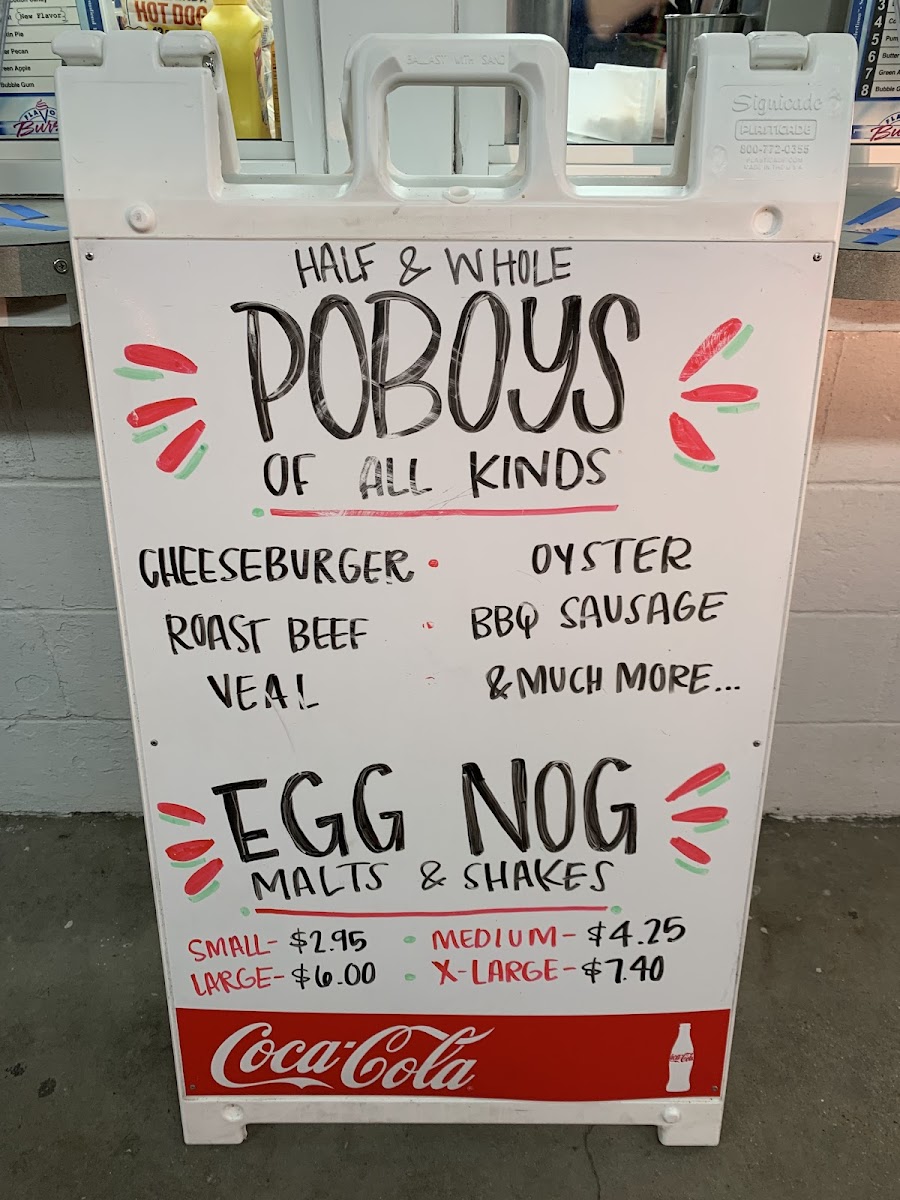 New Flavor
HOT DOG
Pecan
Green Apple
Bubble Gum
3
4
5
6
7
8
BALLAST WITH SAND
Signicade
PLASTICADE
800-772-0355
HALF & WHOLE
POBOYS
OF ALL KINDS
CHEESEBURGER • OYSTER
ROAST BEEF • BBQ SAUSAGE
VEAL • & MUCH MORE...
EGG NOG
MALTS & SHAKES
SMALL- $2.95 • MEDIUM- $4.25
LARGE- $6.00 • X-LARGE- $7.40
Coca-Cola
Coca-Cola